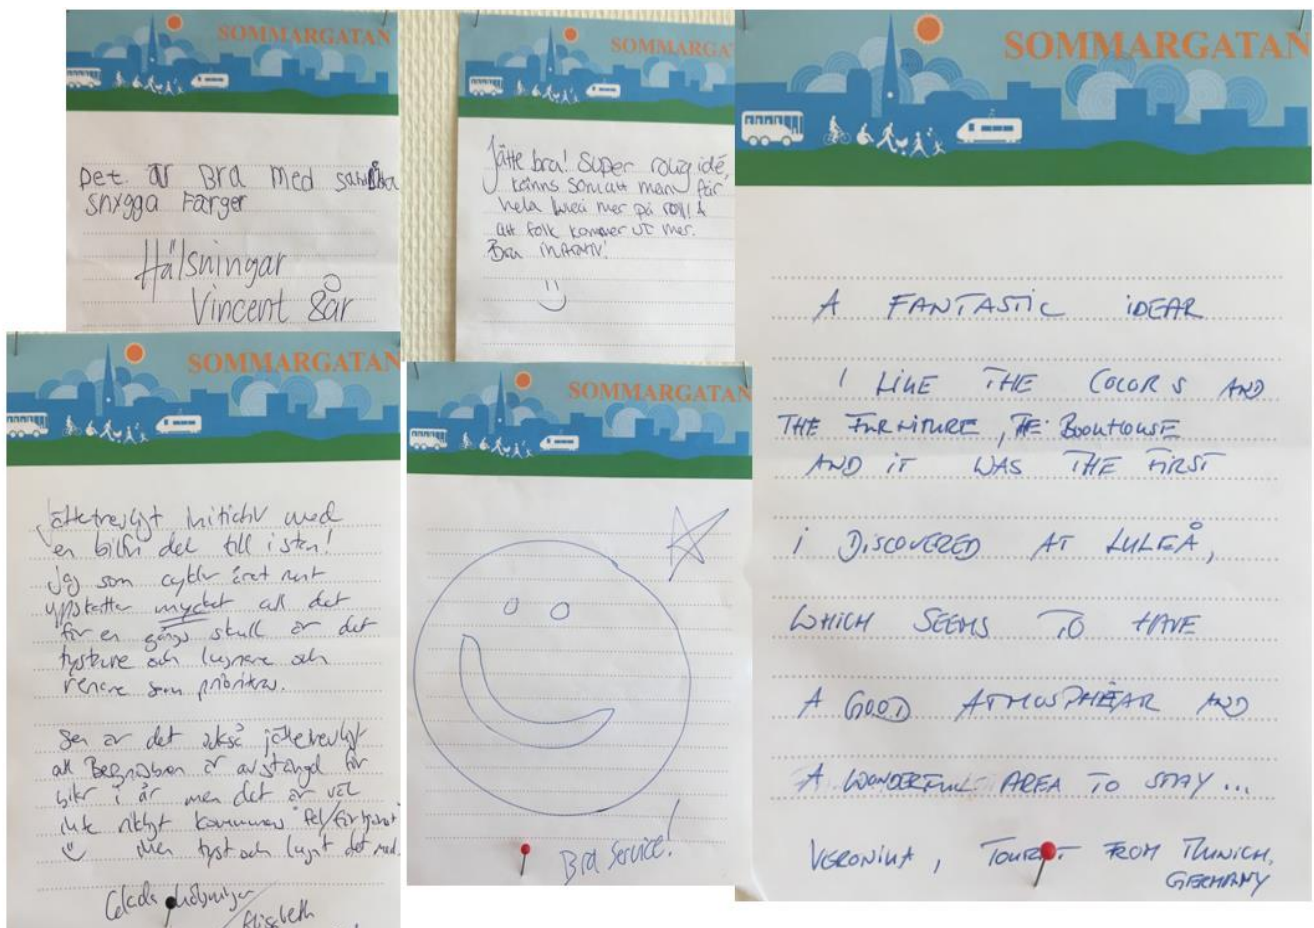 SOMMARGATAN
Det är Bra med
snygga Färger
Hälsningar
Vincent 8år
SOMMARGA
Jätte bra! Super rolig idé,
känns som att man får
hela luleå mer på
att folk kommer ut mer.
Bra
SOMMARGATAN
A FANTASTIC IDEAR
I LIKE THE COLORS AND
THE FURNITURE, THE BOOKHOUSE
AND IT WAS THE FIRST
I DISCOVERED AT LULEÅ,
WHICH SEEMS TO HAVE
A GOOD ATMOSPHEAR AND
A WONDERFUL AREA TO STAY...
VERONIKA, TOURIST FROM MUNICH,
GERMANY
SOMMARGATAN
Jättetrevligt initiativ med
en bilfri del till i stan!
Jag som cyklar året runt
uppskattar mycket att det
för en gångs skull är det
tystare och lugnare och
renare som prioriteras.
Sen är det också jättetrevligt
att Bergnäsbron är avstängd för
bilar i år men det är väl
inte riktigt kommunens fel/förtjänst
Men tyst och lugnt det med.
Glada hälsningar
Elisabeth
SOMMARGATAN
Bra Service!